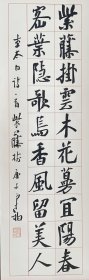 紫藤掛雲木花蔓宜陽春
密葉隱歌鳥香風留美人
李太白詩一首紫藤樹